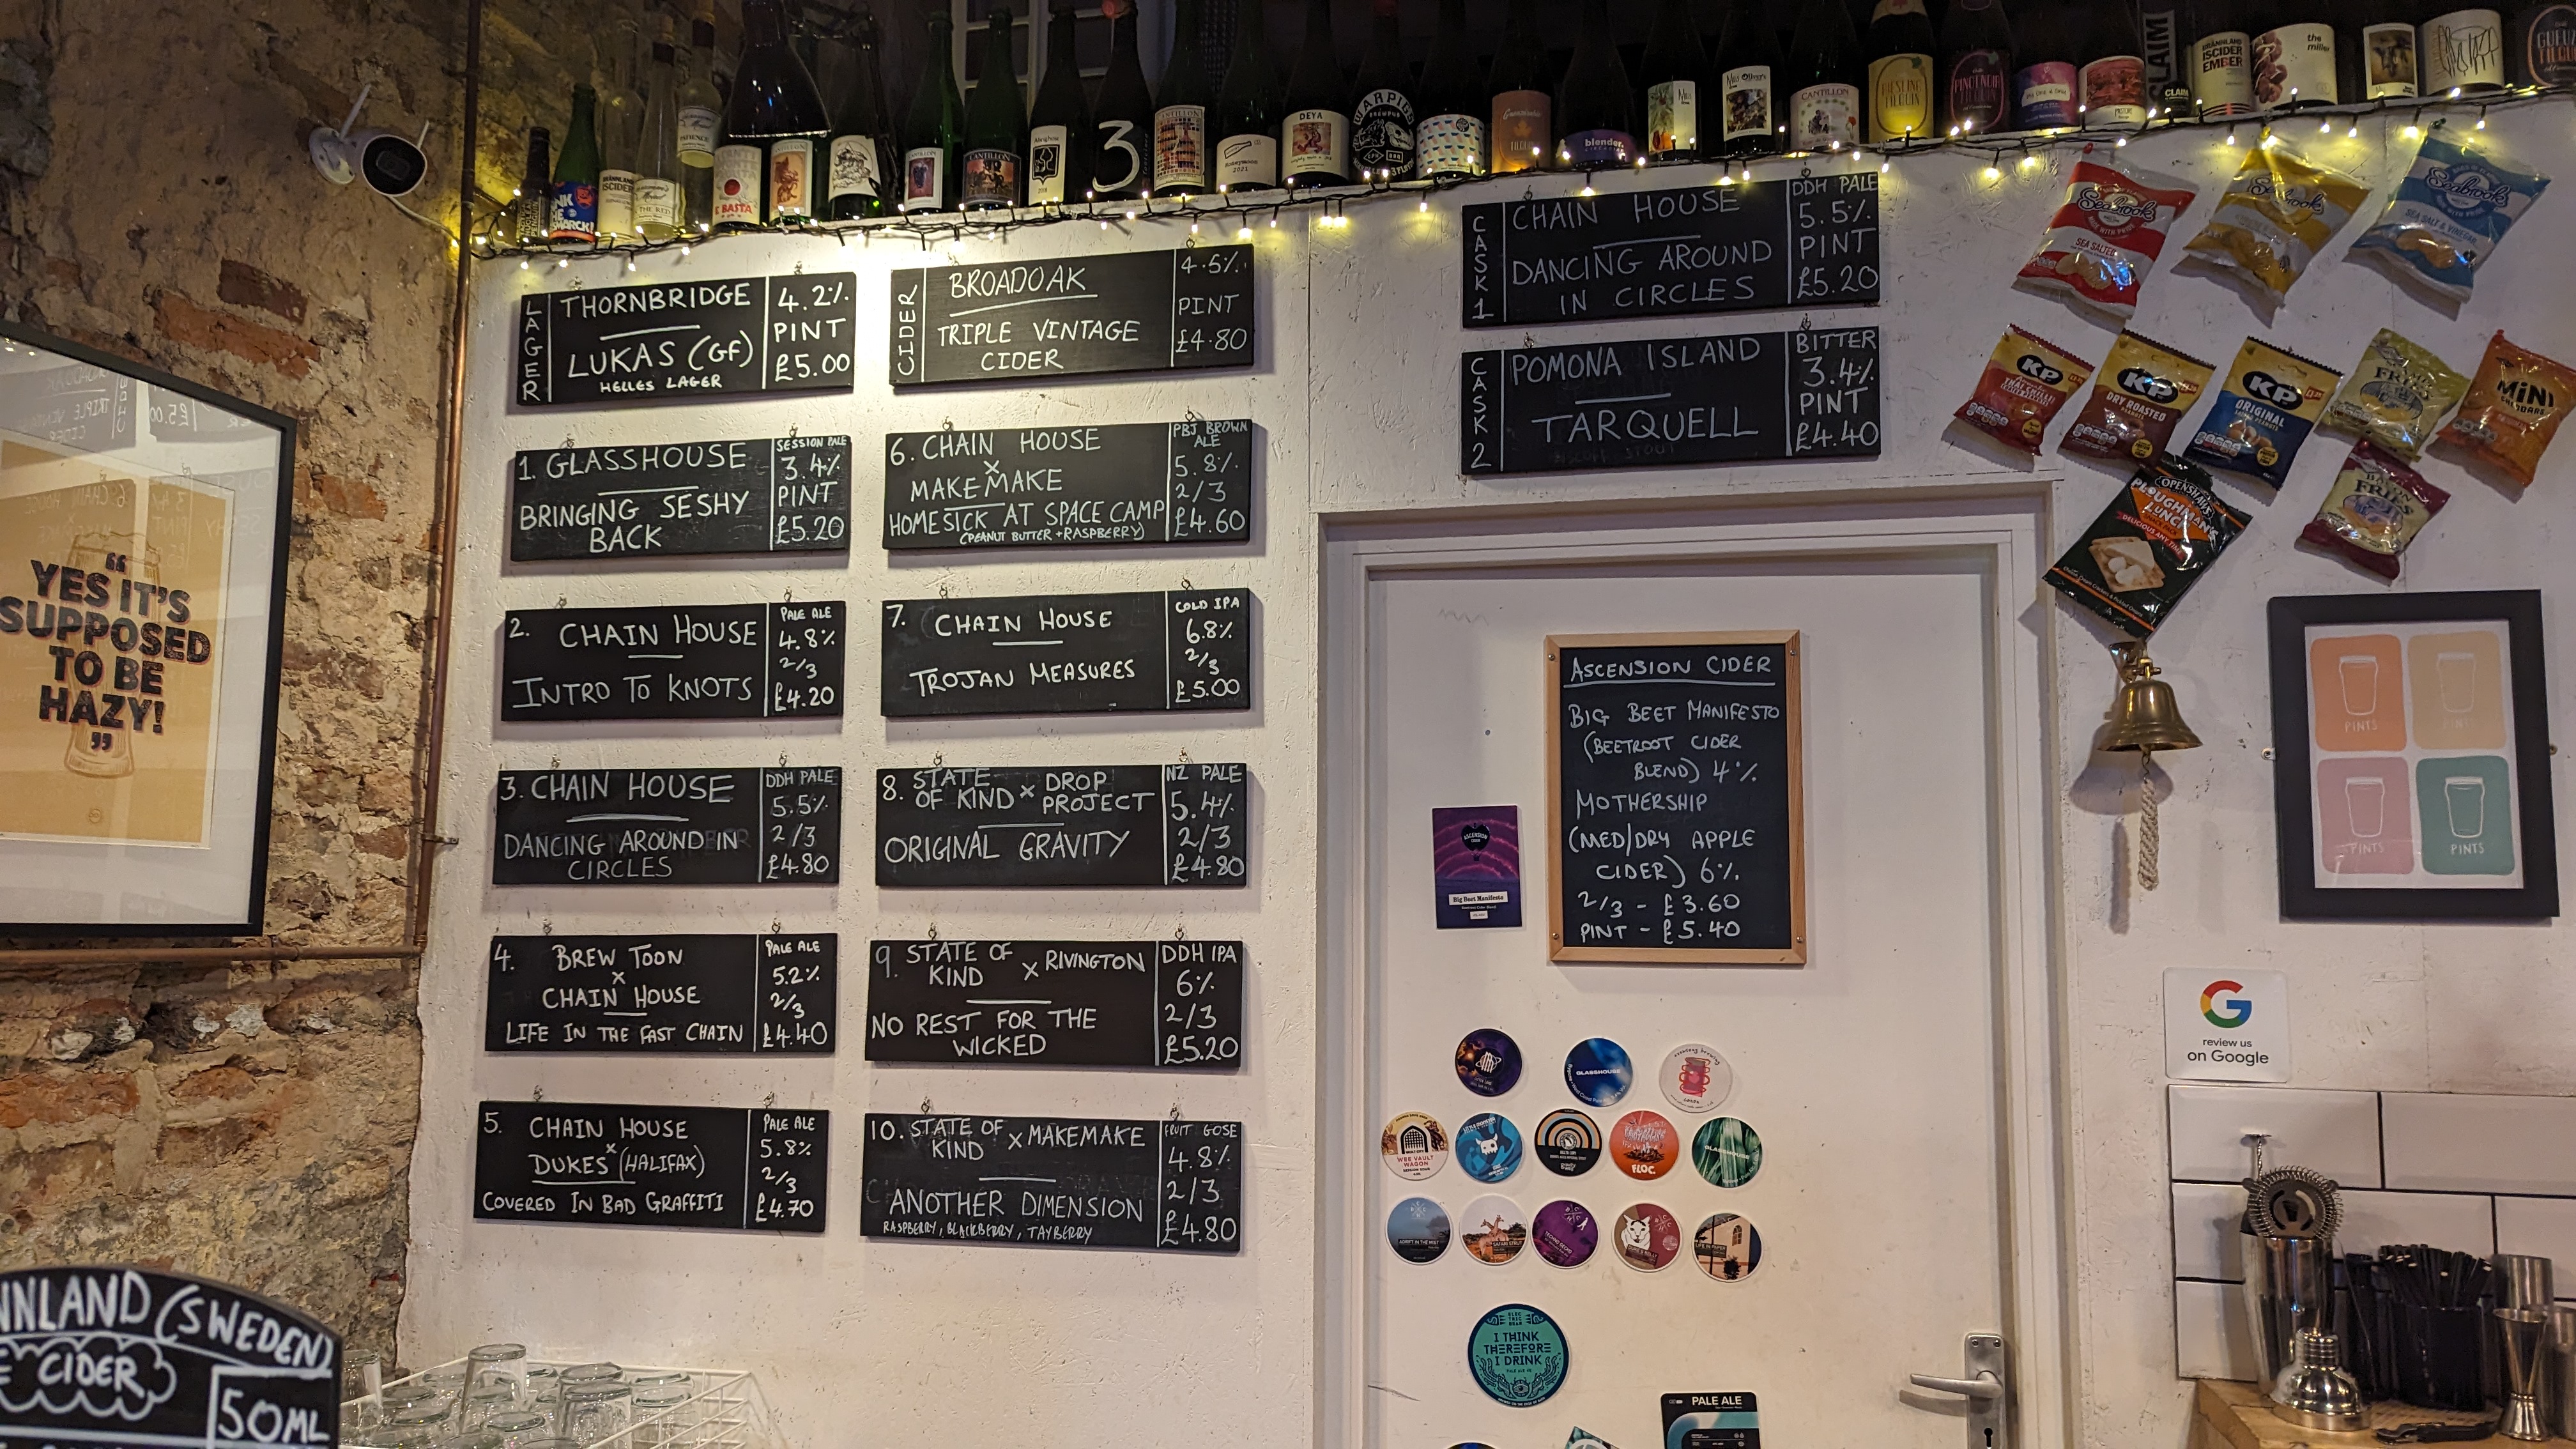 LAGER
THORNBRIDGE
LUKAS (GF)
HELLES LAGER
4.2%
PINT
£5.00
CIDER
BROADOAK
TRIPLE VINTAGE
CIDER
4.5%
PINT
£4.80
1. GLASSHOUSE
BRINGING SESHY
BACK
SESSION PALE
3.4%
PINT
£5.20
6. CHAIN HOUSE
X
MAKEMAKE
HOMESICK AT SPACE CAMP
(PEANUT BUTTER + RASPBERRY)
PBJ BROWN
ALE
5.8%
2/3
£4.60
2. CHAIN HOUSE
INTRO TO KNOTS
PALE ALE
4.8%
2/3
£4.20
7. CHAIN HOUSE
TROJAN MEASURES
COLD IPA
6.8%
2/3
£5.00
3. CHAIN HOUSE
DANCING AROUND IN
CIRCLES
DDH PALE
5.5%
2/3
£4.80
8. STATE OF KIND X DROP PROJECT
ORIGINAL GRAVITY
NZ PALE
5.4%
2/3
£4.80
4. BREW TOON
X
CHAIN HOUSE
LIFE IN THE FAST CHAIN
PALE ALE
5.2%
2/3
£4.40
9. STATE OF KIND X RIVINGTON
NO REST FOR THE
WICKED
DDH IPA
6%
2/3
£5.20
5. CHAIN HOUSE
X
DUKES (HALIFAX)
COVERED IN BAD GRAFFITI
PALE ALE
5.8%
2/3
£4.70
10. STATE OF KIND X MAKEMAKE
ANOTHER DIMENSION
RASPBERRY, BLACKBERRY, TAYBERRY
FRUIT GOSE
4.8%
2/3
£4.80
CASK 1
CHAIN HOUSE
DANCING AROUND
IN CIRCLES
DDH PALE
5.5%
PINT
£5.20
CASK 2
POMONA ISLAND
TARQUELL
BITTER
3.4%
PINT
£4.40
ASCENSION CIDER
BIG BEET MANIFESTO
(BEETROOT CIDER
BLEND) 4%
MOTHERSHIP
(MED/DRY APPLE
CIDER) 6%
2/3 - £3.60
PINT - £5.40
ASCENSION
Big Beet Manifesto
“
YES IT'S
SUPPOSED
TO BE
HAZY!
”
NNLAND (SWEDEN)
E CIDER
50ML
CANTILLON
3
HONEYMOON
2021
DEYA
WARPIGS
BREWPUB
blender.
CANTILLON
RIESLING
TILQUIN
PINOT NOIR
CLAIM
BRÄNNLAND
ISCIDER
EMBER
the
GUEUZE
TILQUIN
Seabrook
SEA SALTED
Seabrook
Seabrook
SEA SALT & VINEGAR
KP
KP
DRY ROASTED
KP
ORIGINAL
FRIES
MINI
CHEDDARS
OPENSHAWS
PLOUGHMAN'S
LUNCH
DELICIOUS ANY TIME
BACON
FRIES
PINTS
PINTS
PINTS
PINTS
G
review us
on Google
GLASSHOUSE
WEE VAULT
WAGON
FLOC.
GLASSHOUSE
I THINK
THEREFORE
I DRINK
PALE ALE